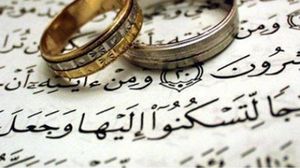 شِرُونَ ٢٠ وَمِنْ ءَايَٰتِهِۦٓ أَنْ
جًا لِّتَسْكُنُوٓا۟ إِلَيْهَا وَجَعَلَ